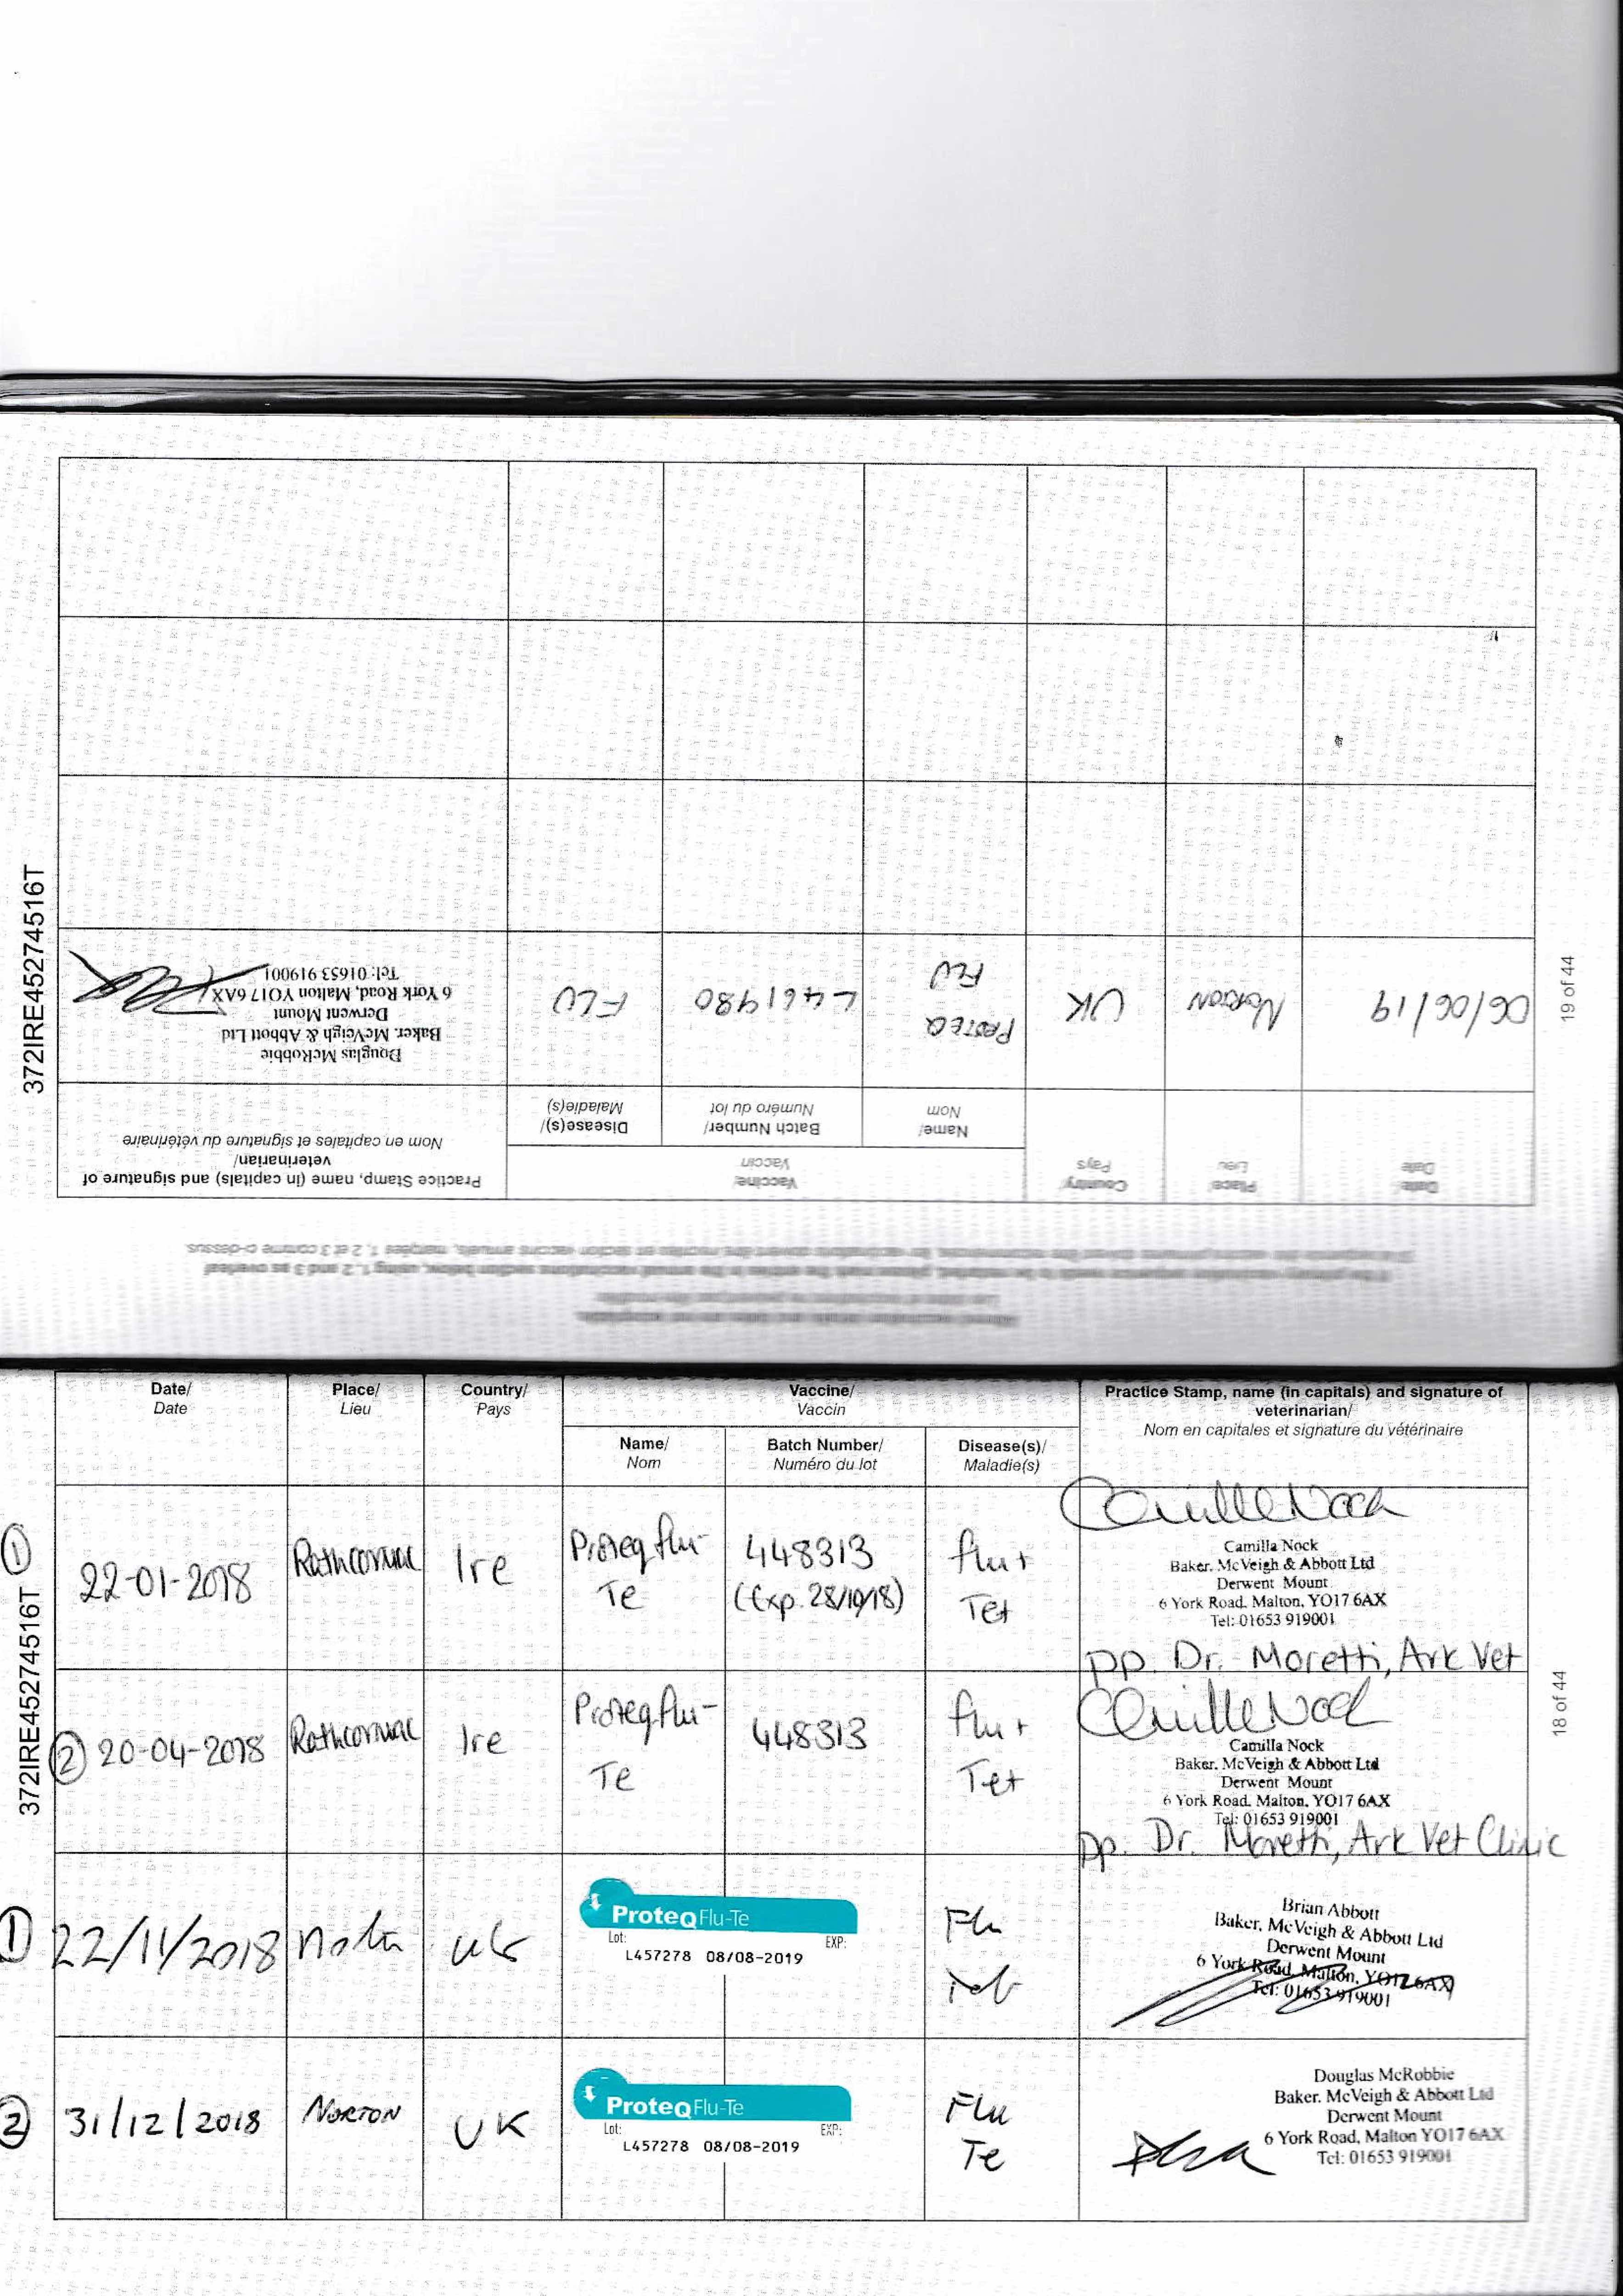 372IRE45274516T
19 of 44
Allowed vaccination details and dates are not acceptable
If the primary vaccination sequence needs to be restarted, please mark the entries in the annual vaccinations section below, using 1, 2 and 3 as overleaf
Date/
Date
Place/
Lieu
Country/
Pays
Vaccine/
Vaccin
Name/
Nom
Batch Number/
Numéro du lot
Disease(s)/
Maladie(s)
Practice Stamp, name (in capitals) and signature of
veterinarian/
Nom en capitales et signature du vétérinaire
06/06/19
NORTON
UK
PROTEQ
FLU
L461980
FLU
Douglas McRobbie
Baker, McVeigh & Abbott Ltd
Derwent Mount
6 York Road, Malton YO17 6AX
Tel: 01653 919001
372IRE45274516T
18 of 44
Date/
Date
Place/
Lieu
Country/
Pays
Vaccine/
Vaccin
Name/
Nom
Batch Number/
Numéro du lot
Disease(s)/
Maladie(s)
Practice Stamp, name (in capitals) and signature of
veterinarian/
Nom en capitales et signature du vétérinaire
1
22-01-2018
Rathcormac
Ire
Proteq flu-
Te
448313
(Exp. 28/10/18)
flu +
Tet
Camilla Nock
Camilla Nock
Baker, McVeigh & Abbott Ltd
Derwent Mount
6 York Road, Malton, YO17 6AX
Tel: 01653 919001
pp. Dr. Moretti, Ark Vet
2
20-04-2018
Rathcormac
Ire
Proteq flu-
Te
448313
flu +
Tet
Camilla Nock
Camilla Nock
Baker, McVeigh & Abbott Ltd
Derwent Mount
6 York Road, Malton, YO17 6AX
Tel: 01653 919001
pp. Dr. Moretti, Ark Vet Clinic
1
22/11/2018
UK
ProteqFlu-Te
Lot: EXP:
L457278 08/08-2019
Flu
Tet
Brian Abbott
Baker, McVeigh & Abbott Ltd
Derwent Mount
6 York Road, Malton, YO17 6AX
Tel: 01653 919001
2
31/12/2018
NORTON
UK
ProteqFlu-Te
Lot: EXP:
L457278 08/08-2019
Flu
Te
Douglas McRobbie
Baker, McVeigh & Abbott Ltd
Derwent Mount
6 York Road, Malton YO17 6AX
Tel: 01653 919001